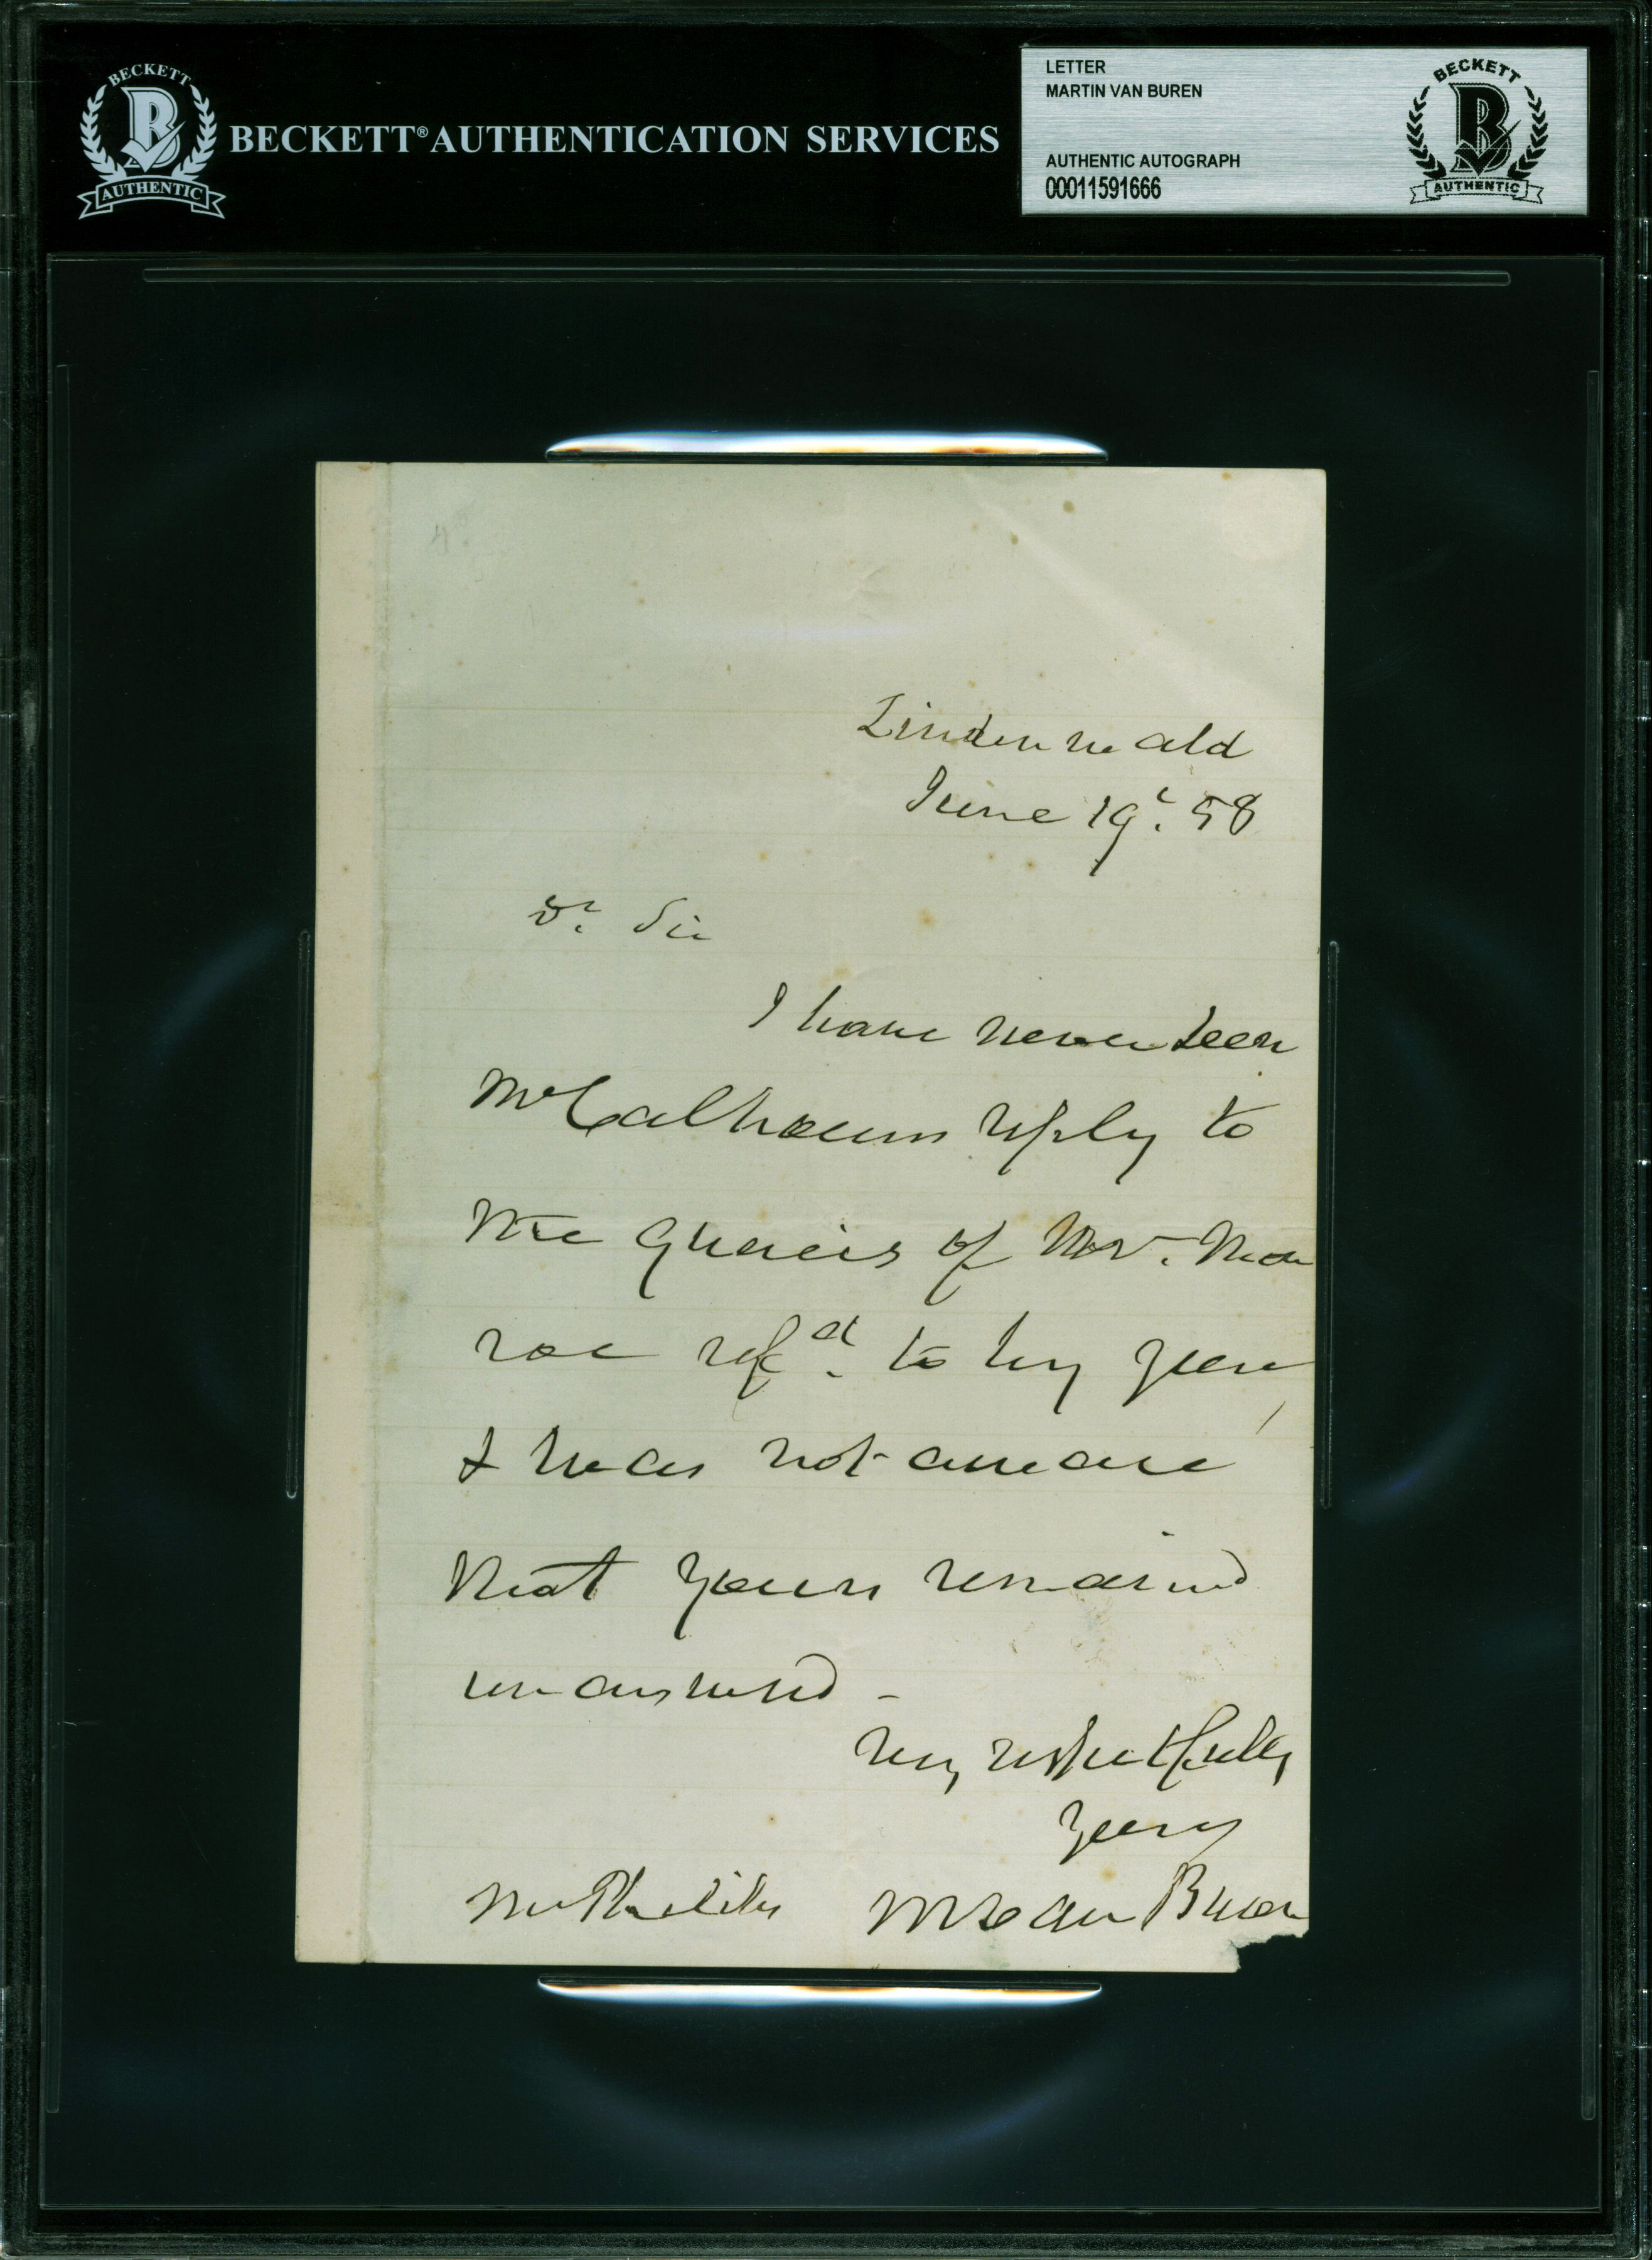 BECKETT
B
AUTHENTIC
BECKETT® AUTHENTICATION SERVICES
LETTER
MARTIN VAN BUREN
AUTHENTIC AUTOGRAPH
00011591666
BECKETT
B
AUTHENTIC
Lindenwald
June 19t. 58
Dr. Sir
I have never seen
Mr Calhouns reply to
the queries of Mr. Mon
roe refd. to by you
& was not aware
that yours remained
unanswered -
Very respectfully
Yours
Mr
M Van Buren